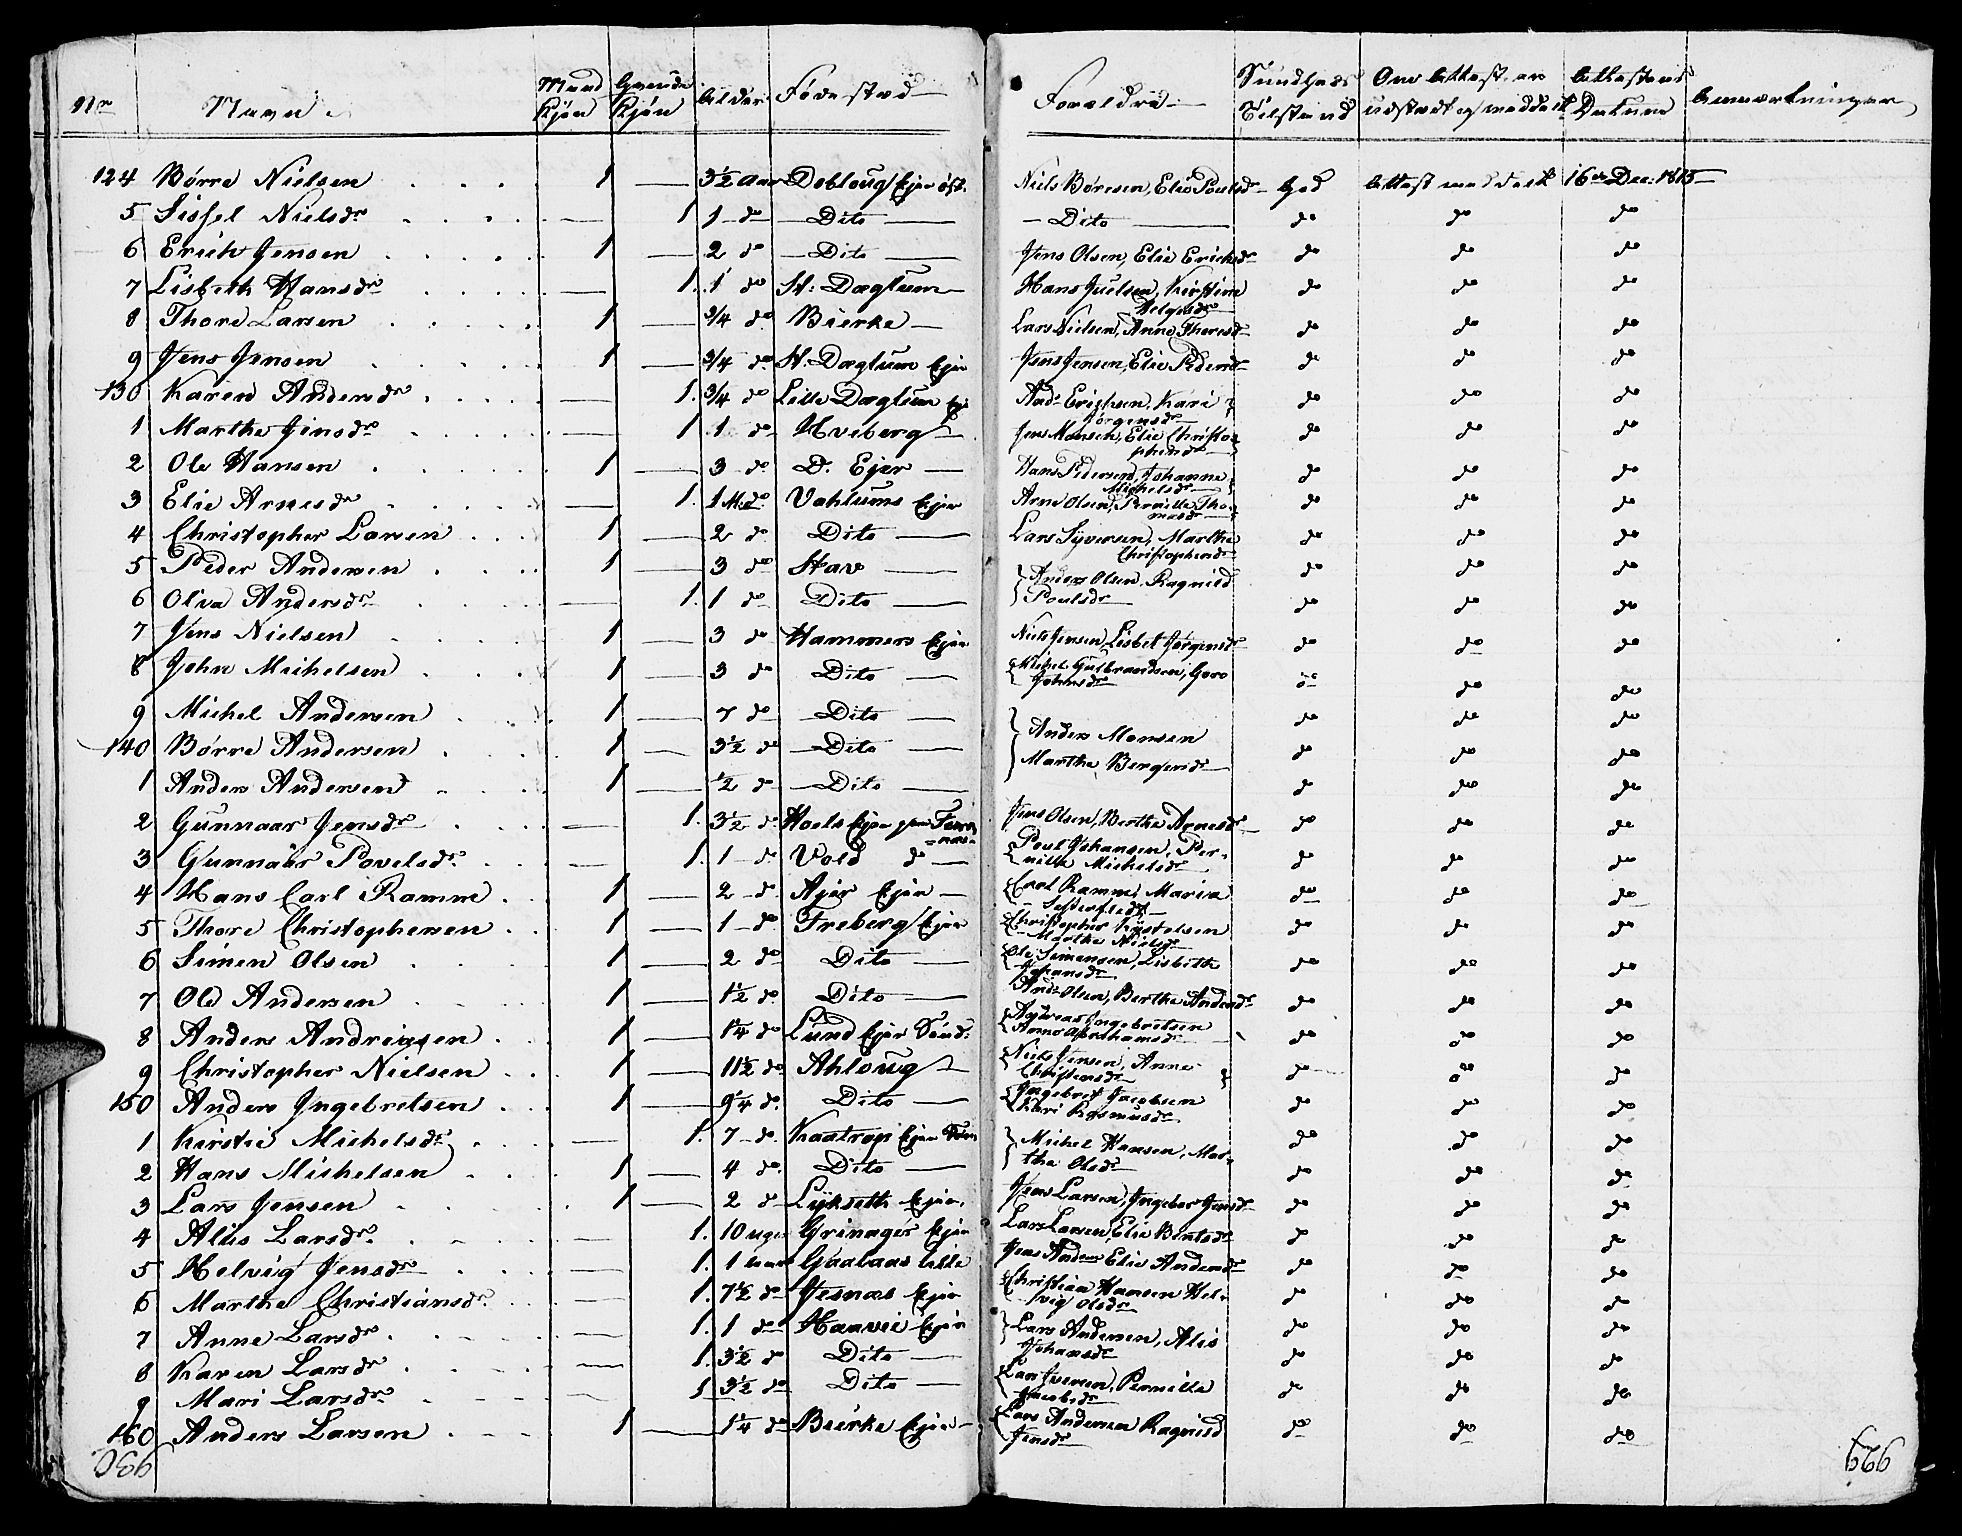 No Navn Mand Kjøn Qvinde Kjøn Alder Fødested Forældre Sundheds Tilstand Om Attest er udstædt og meddelt Attestens Datum Anmærkninger
124 Børre Nielsen 1 3½ Aar Dobloug Ejer øst. Niels Børesen, Elie Poulsdr God Attest meddelt 16de Dec: 1815
5 Sissel Nielsdr 1 1 do Dito Dito do do do
6 Erich Jensen 1 2 do Dito Jens Olsen, Elie Erichsdr do do do
7 Lisbeth Hansdr 1. 1 do St: Dæglum Hans Juelsen, Kirstine Helgesdr do do do
8 Thore Larsen 1 3/4 do Bierke Lars Nielsen, Anne Thoresdr do do do
9 Jens Jensen 1 3/4 do St: Dæglum Ejer Jens Jensen, Elie Pedersdr do do do
130 Karen Andersdr 1. 3/4 do Lille Dæglum Ejer Ands Erichsen, Kari Jørgensdr do do do
1 Marthe Jensdr 1 1 do Hveberg Jens Monsen, Elie Christophersdr do do do
2 Ole Hansen 1 3 do D. Ejer Hans Pedersen, Johanne Michelsdr do do do
3 Elie Arnesdr 1. 1 Md Vahlums Ejer Arne Olsen, Pernille Thomasdr do do do
4 Christopher Larsen 1 2 do Dito Lars Syversen, Marthe Christophersdr do do do
5 Peder Andersen 1 3 do Stav Anders Olsen, Ragnild do do do
6 Oliva Andersdr 1. 1 do Dito Poulsdr do do do
7 Jens Nielsen 1 3 do Hammers Ejer Niels Jensen, Lisbet Jørgensdr do do do
8 John Michelsen 1 3 do Dito Michel Gulbrandsen, Goro Johnsdr do do do
9 Michel Andersen 1 7 do Dito Anders Monsen do do do
140 Børre Andersen 1 3½ do Dito Marthe Børgersdr do do do
1 Anders Andersen 1 ½ do Dito do do do
2 Gunnaar Jensdr 1. 3½ do Hoels Ejer Jens Olsen, Berthe Arnesdr do do do
3 Gunnaar Povelsdr 1. 1 do Vold do Poul Johansen, Pernille Michelsdr do do do
4 Hans Carl Ramm 1 2 do Ajer Ejer Carl Ramm, Maria do do do
5 Thore Christophersen 1 1 do Freberg Ejer Christopher Tøstelsen Marthe Nielsdr do do do
6 Simen Olsen 1 2 do Dito Ole Simensen, Lisbeth Johansdr do do do
7 Ole Andersen 1 1½ do Dito Ands Olsen, Berthe Andersdr do do do
8 Anders Andreasen 1 1¼ do Lund Ejer Sønd: Andreas Ingebretsen Anne Abrahamsdr do do do
9 Christopher Nielsen 1 11½ do Ahloug Niels Jensen, Anne Christensdr do do do
150 Anders Ingebretsen 1 9¼ do Dito Ingebret Jacobsen Kari Rasmusdr do do do
1 Kirstie Michelsdr 1. 7 do Kaatrop Ejer Michel Hansen, Mar- do do do
2 Hans Michelsen 1 4 do Dito the Olsdr do do do
3 Lars Jensen 1 2 do Lykseth Ejer Jens Larsen, Ingebor Jensdr do do do
4 Alis Larsdr 1. 10 uger Grinager Ejer Lars Larsen, Elie Bentsdr do do do
5 Helvig Jensdr 1. 1 Aar Gaalaas Lille Jens Anders Elie Andersdr do do do
6 Marthe Christiansdr 1. 7½ do Jesnæs Ejer Christian Hansen Helvig Olsdr do do do
7 Anne Larsdr 1. 1 do Haavie Ejer Lars Andersen, Alis do do do
8 Karen Larsdr 1. 3½ do Dito Johansdr do do do
9 Mari Larsdr 1 3½ do Dito Lars Iversen, Pernille Jacobsdr do do do
160 Anders Larsen 1 1¼ do Bierke Ejer Lars Andersen Ragnild Jensdr do do do